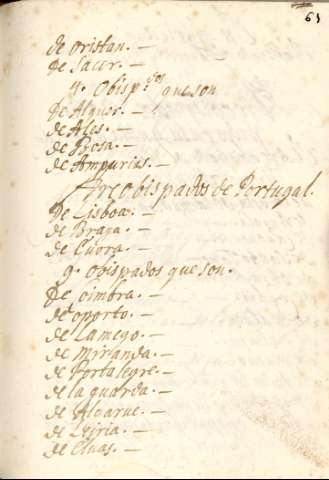 61
de oristan. —
de Sacer. —
4. Obisp.os que son
de Alguer. —
de Ales. —
de Bosa. —
de Ampurias. —
Arcobispados de Portugal.
de Lisboa. —
de Braga. —
de Euora. —
9. obispados que son.
de Coimbra. —
de oporto. —
de Lamego. —
de Miranda. —
de Portalegre. —
de la guarda. —
de Algarue. —
de Leiria. —
de Eluas. —